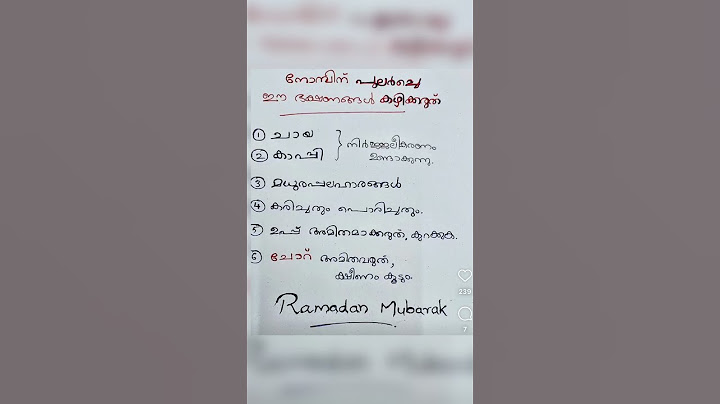 നോമ്പിന് പുലർച്ചെ
ഈ ഭക്ഷണങ്ങൾ കഴിക്കരുത്
① ചായ
② കാപ്പി
നിർജ്ജലീകരണം
ഉണ്ടാക്കുന്നു.
③ മധുരപലഹാരങ്ങൾ
④ കരിച്ചതും പൊരിച്ചതും.
⑤ ഉപ്പ് അമിതമാക്കരുത്, കുറക്കുക.
⑥ ചോറ് അമിതമരുത്,
ക്ഷീണം കൂടും.
Ramadan Mubarak
239
7